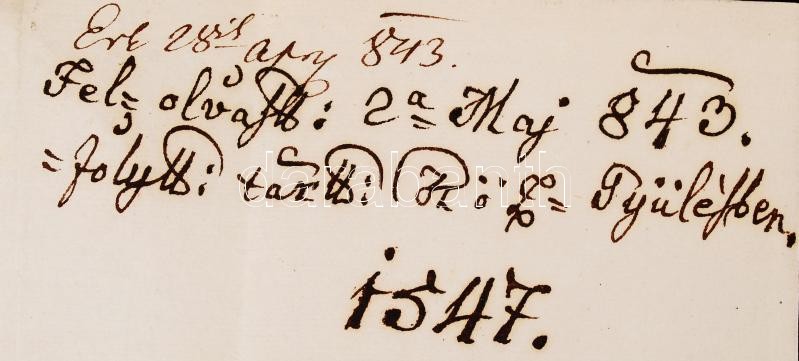 Erk 28is apry 843.
Fel olvastt: 2a Maj 843.
=folytt: tartt: K: Gyülésben.
1547.
darabanth